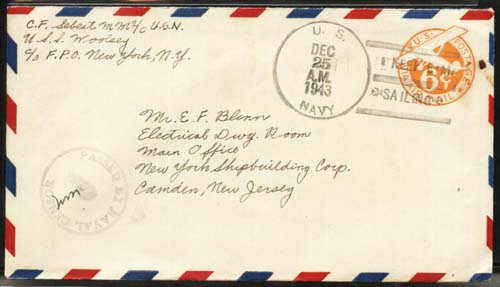 C.F. Sebest MM2/c U.S.N.
U.S.S. Woolsey
c/o F.P.O. New York, N.Y.
U. S.
DEC
25
A.M.
1943
NAVY
KEEP 'EM
SAILING
U.S. POSTAGE
6¢
AIR MAIL
Mr. E. F. Blenn
Electrical Dwg. Room
Main Office
New York Shipbuilding Corp.
Camden, New Jersey
PASSED BY NAVAL CENSOR